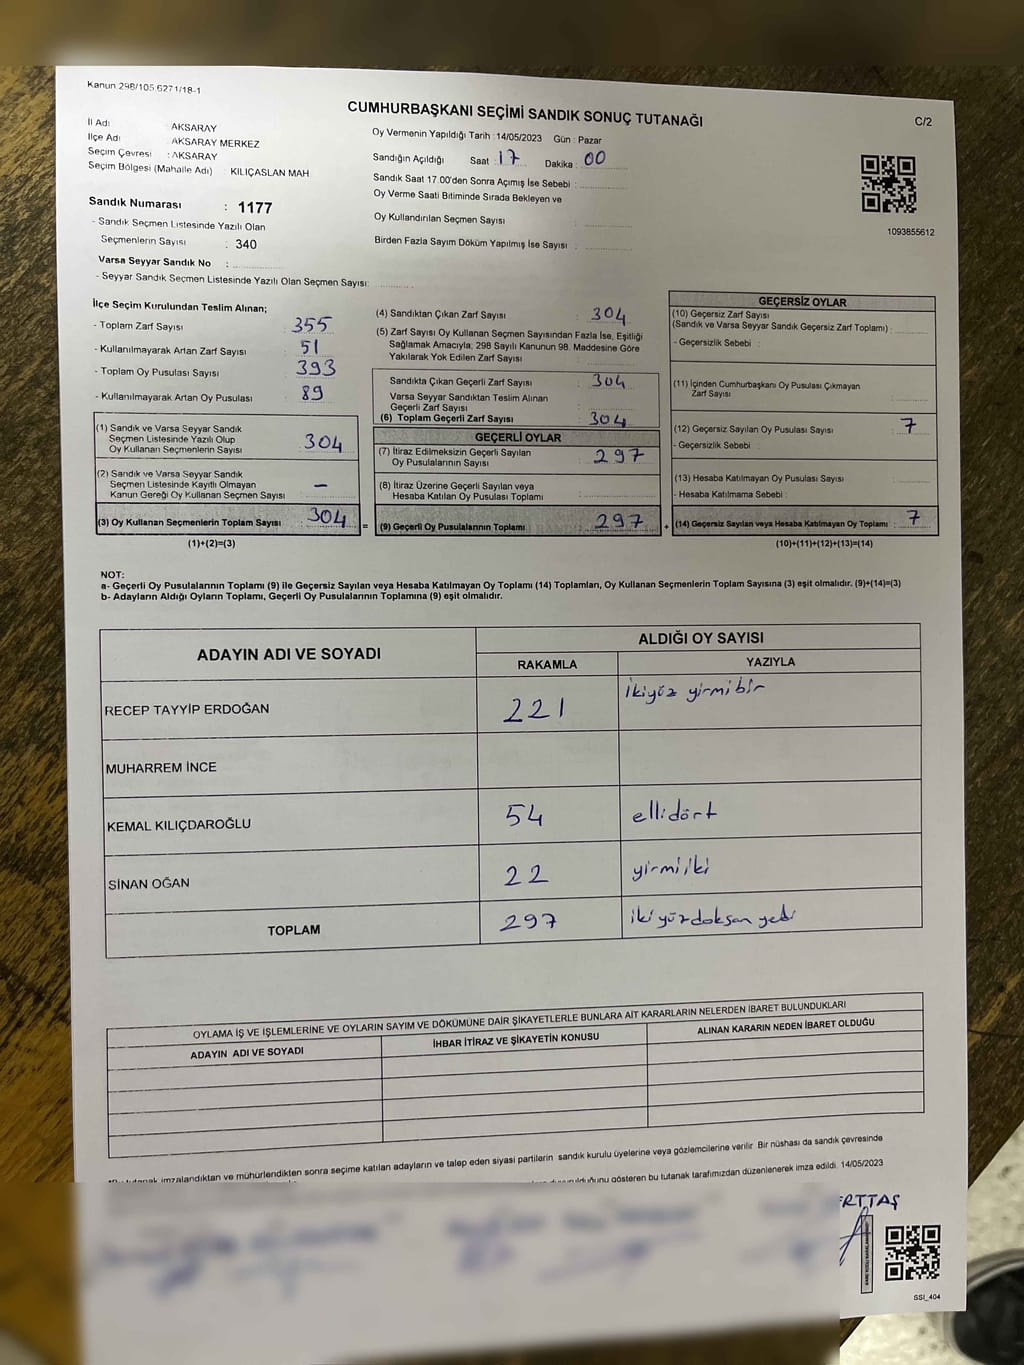 Kanun.298/105,6271/18-1
CUMHURBAŞKANI SEÇİMİ SANDIK SONUÇ TUTANAĞI
C/2
İl Adı : AKSARAY
İlçe Adı : AKSARAY MERKEZ
Seçim Çevresi : AKSARAY
Seçim Bölgesi (Mahalle Adı) : KILIÇASLAN MAH
Sandık Numarası : 1177
- Sandık Seçmen Listesinde Yazılı Olan
Seçmenlerin Sayısı : 340
Varsa Seyyar Sandık No :
- Seyyar Sandık Seçmen Listesinde Yazılı Olan Seçmen Sayısı:
Oy Vermenin Yapıldığı Tarih : 14/05/2023 Gün : Pazar
Sandığın Açıldığı Saat : 17 Dakika : 00
Sandık Saat 17.00'den Sonra Açımış İse Sebebi :
Oy Verme Saati Bitiminde Sırada Bekleyen ve
Oy Kullandırılan Seçmen Sayısı :
Birden Fazla Sayım Döküm Yapılmış İse Sayısı :
1093855612
İlçe Seçim Kurulundan Teslim Alınan;
- Toplam Zarf Sayısı : 355
- Kullanılmayarak Artan Zarf Sayısı : 51
- Toplam Oy Pusulası Sayısı : 393
- Kullanılmayarak Artan Oy Pusulası : 89
(1) Sandık ve Varsa Seyyar Sandık
Seçmen Listesinde Yazılı Olup
Oy Kullanan Seçmenlerin Sayısı : 304
(2) Sandık ve Varsa Seyyar Sandık
Seçmen Listesinde Kayıtlı Olmayan
Kanun Gereği Oy Kullanan Seçmen Sayısı : –
(3) Oy Kullanan Seçmenlerin Toplam Sayısı : 304 =
(1)+(2)=(3)
(4) Sandıktan Çıkan Zarf Sayısı : 304
(5) Zarf Sayısı Oy Kullanan Seçmen Sayısından Fazla İse, Eşitliği
Sağlamak Amacıyla; 298 Sayılı Kanunun 98. Maddesine Göre
Yakılarak Yok Edilen Zarf Sayısı :
Sandıkta Çıkan Geçerli Zarf Sayısı : 304
Varsa Seyyar Sandıktan Teslim Alınan
Geçerli Zarf Sayısı :
(6) Toplam Geçerli Zarf Sayısı : 304
GEÇERLİ OYLAR
(7) İtiraz Edilmeksizin Geçerli Sayılan
Oy Pusulalarının Sayısı : 297
(8) İtiraz Üzerine Geçerli Sayılan veya
Hesaba Katılan Oy Pusulası Toplamı :
(9) Geçerli Oy Pusulalarının Toplamı : 297 +
GEÇERSİZ OYLAR
(10) Geçersiz Zarf Sayısı
(Sandık ve Varsa Seyyar Sandık Geçersiz Zarf Toplamı) :
- Geçersizlik Sebebi :
(11) İçinden Cumhurbaşkanı Oy Pusulası Çıkmayan
Zarf Sayısı :
(12) Geçersiz Sayılan Oy Pusulası Sayısı : 7
- Geçersizlik Sebebi :
(13) Hesaba Katılmayan Oy Pusulası Sayısı :
- Hesaba Katılmama Sebebi :
(14) Geçersiz Sayılan veya Hesaba Katılmayan Oy Toplamı : 7
(10)+(11)+(12)+(13)=(14)
NOT:
a- Geçerli Oy Pusulalarının Toplamı (9) ile Geçersiz Sayılan veya Hesaba Katılmayan Oy Toplamı (14) Toplamları, Oy Kullanan Seçmenlerin Toplam Sayısına (3) eşit olmalıdır. (9)+(14)=(3)
b- Adayların Aldığı Oyların Toplamı, Geçerli Oy Pusulalarının Toplamına (9) eşit olmalıdır.
ADAYIN ADI VE SOYADI
ALDIĞI OY SAYISI
RAKAMLA YAZIYLA
RECEP TAYYİP ERDOĞAN 221 ikiyüz yirmibir
MUHARREM İNCE
KEMAL KILIÇDAROĞLU 54 ellidört
SİNAN OĞAN 22 yirmiiki
TOPLAM 297 ikiyüzdoksan yedi
OYLAMA İŞ VE İŞLEMLERİNE VE OYLARIN SAYIM VE DÖKÜMÜNE DAİR ŞİKAYETLERLE BUNLARA AİT KARARLARIN NELERDEN İBARET BULUNDUKLARI
ADAYIN ADI VE SOYADI İHBAR İTİRAZ VE ŞİKAYETİN KONUSU ALINAN KARARIN NEDEN İBARET OLDUĞU
imzalandıktan ve mühürlendikten sonra seçime katılan adayların ve talep eden siyasi partilerin sandık kurulu üyelerine veya gözlemcilerine verilir Bir nüshası da sandık çevresinde
gösteren bu tutanak tarafımızdan düzenlenerek imza edildi. 14/05/2023
ERTTAŞ
SSI_404